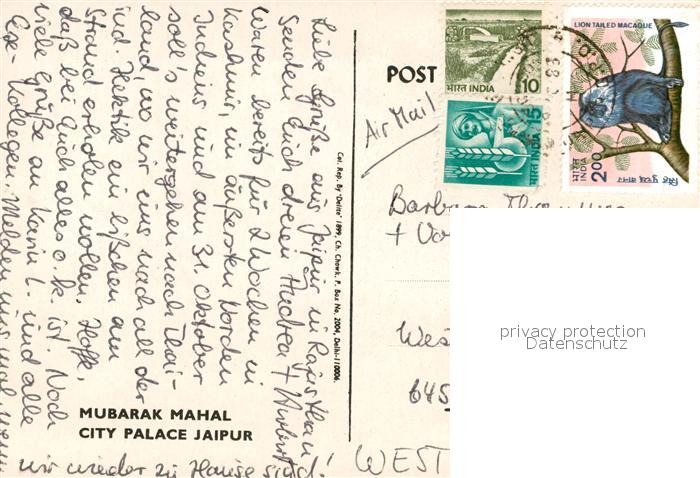 Liebe Grüße aus Jaipur in Rajasthan
senden Euch dreien Andrea +
waren bereits für 2 Wochen in
Kashmir, im äußersten Norden
Indiens und am 31. Oktober
soll's weitergehen nach Thai-
land, wo wir uns nach all der
ind. Hektik ein bißchen am
Strand erholen wollen. Hoffe,
daß bei Euch alles o.k. ist. Noch
viele Grüße an Karin L. und alle
Ex-Kollegen. Melden uns mal, wenn
wir wieder zu Hause sind!
MUBARAK MAHAL
CITY PALACE JAIPUR
Col. Rep. By 'Delite' 1899, Ch. Chowk, P. Box No. 2004, Delhi-110006.
POST
Air Mail
भारत INDIA 10
भारत INDIA 15
LION TAILED MACAQUE
भारत INDIA 200
सिंह पुच्छ वानर
Barbara
+
West
645
WEST
privacy protection
Datenschutz